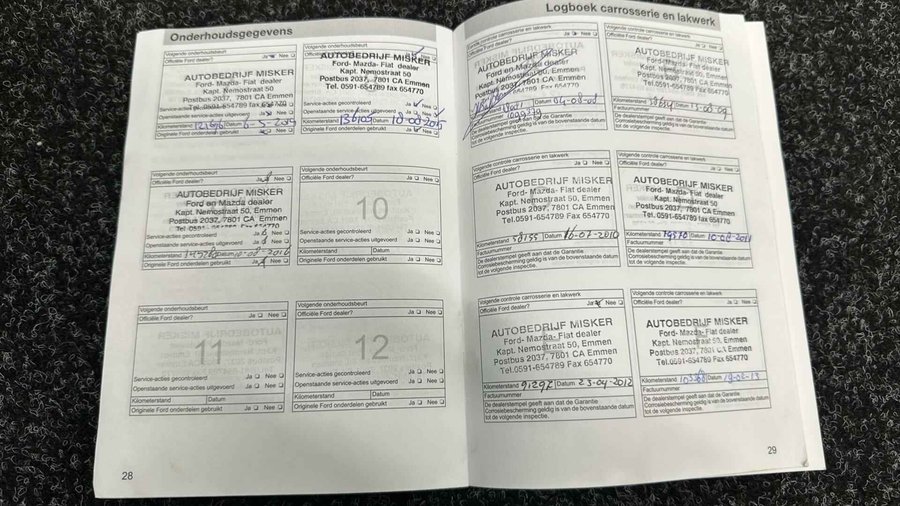 Onderhoudsgegevens
Volgende onderhoudsbeurt
Officiële Ford dealer? Ja Nee
AUTOBEDRIJF MISKER
Ford- Mazda- Fiat dealer
Kapt. Nemostraat 50
Postbus 2037, 7801 CA Emmen
Tel. 0591-654789 fax 654770
Service-acties gecontroleerd Ja Nee
Openstaande service-acties uitgevoerd Ja Nee
Kilometerstand Datum
Originele Ford onderdelen gebruikt Ja Nee
Volgende onderhoudsbeurt
AUTOBEDRIJF MISKER
Ford- Mazda- Fiat dealer
Kapt. Nemostraat 50
Postbus 2037, 7801 CA Emmen
Tel. 0591-654789 fax 654770
Service-acties gecontroleerd Ja Nee
Openstaande service-acties uitgevoerd Ja Nee
Kilometerstand Datum
Originele Ford onderdelen gebruikt Ja Nee
Volgende onderhoudsbeurt
Officiële Ford dealer? Ja Nee
AUTOBEDRIJF MISKER
Ford en Mazda dealer
Kapt. Nemostraat 50, Emmen
Postbus 2037, 7801 CA Emmen
Tel. 0591
Service-acties gecontroleerd Ja
Openstaande service-acties uitgevoerd Ja Nee
Kilometerstand Datum
Originele Ford onderdelen gebruikt Ja Nee
Volgende onderhoudsbeurt
Officiële Ford dealer? Ja Nee
10
Service-acties gecontroleerd Ja Nee
Openstaande service-acties uitgevoerd Ja Nee
Kilometerstand Datum
Originele Ford onderdelen gebruikt Ja Nee
Volgende onderhoudsbeurt
Officiële Ford dealer? Ja Nee
11
Service-acties gecontroleerd Ja Nee
Openstaande service-acties uitgevoerd Ja Nee
Kilometerstand Datum
Originele Ford onderdelen gebruikt Ja Nee
Volgende onderhoudsbeurt
Officiële Ford dealer? Ja Nee
12
Service-acties gecontroleerd Ja Nee
Openstaande service-acties uitgevoerd Ja Nee
Kilometerstand Datum
Originele Ford onderdelen gebruikt Ja Nee
28
Logboek carrosserie en lakwerk
Volgende controle carrosserie en lakwerk
Officiële Ford dealer? Ja Nee
AUTOBEDRIJF MISKER
Ford en Mazda dealer
Kapt. Nemostraat 50, Emmen
Datum 04-08-08
De dealerstempel geeft aan dat de Garantie
Corrosiebescherming geldig is van de bovenstaande datum
tot de volgende inspectie.
AUTOBEDRIJF MISKER
Kilometerstand Datum
Factuurnummer
De dealerstempel geeft aan dat de Garantie
Corrosiebescherming geldig is van de bovenstaande datum
tot de volgende inspectie.
Volgende controle carrosserie en lakwerk
Officiële Ford dealer? Ja Nee
AUTOBEDRIJF MISKER
Ford- Mazda- Fiat dealer
Kapt. Nemostraat 50
Postbus 2037, 7801 CA Emmen
Tel.0591-654789 Fax 654770
Kilometerstand 58155 Datum 16-07-2010
Factuurnummer
De dealerstempel geeft aan dat de Garantie
Corrosiebescherming geldig is van de bovenstaande datum
tot de volgende inspectie.
Volgende controle carrosserie en lakwerk
AUTOBEDRIJF MISKER
Ford- Mazda- Fiat dealer
Kapt. Nemostraat 50
Postbus 2037, 7801 CA Emmen
Tel.0591-654789 Fax 654770
Kilometerstand Datum
Factuurnummer
De dealerstempel geeft aan dat de Garantie
Corrosiebescherming geldig is van de bovenstaande datum
tot de volgende inspectie.
Volgende controle carrosserie en lakwerk
Officiële Ford dealer? Ja Nee
AUTOBEDRIJF MISKER
Ford- Mazda- Fiat dealer
Kapt. Nemostraat 50
Postbus 2037, 7801 CA Emmen
Tel.0591-654789 Fax 654770
Kilometerstand 91297 Datum 23-04-2012
Factuurnummer
De dealerstempel geeft aan dat de Garantie
Corrosiebescherming geldig is van de bovenstaande datum
tot de volgende inspectie.
Volgende controle carrosserie en lakwerk
Officiële Ford dealer? Ja Nee
AUTOBEDRIJF MISKER
Ford- Mazda- Fiat dealer
Kapt. Nemostraat 50
Postbus 2037, 7801 CA Emmen
Tel.0591-654789 Fax 654770
Kilometerstand Datum
Factuurnummer
De dealerstempel geeft aan dat de Garantie
Corrosiebescherming geldig is van de bovenstaande datum
tot de volgende inspectie.
29